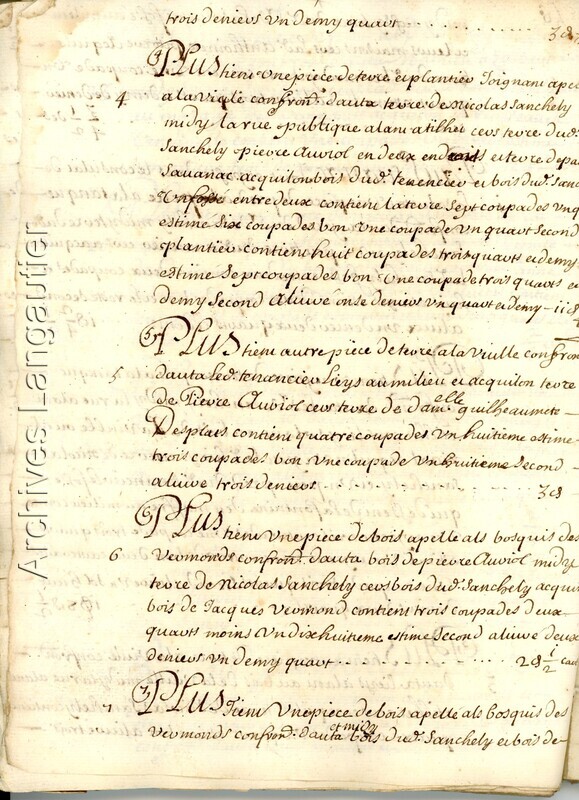 trois deniers un demy quart 3 d
4 Plus tient une piece de terre et plantier Joignant ape
a la Viale confron.t d'auta terre de Nicolas Sanchely
midy la rue publique alani atilhei cers terre dud.
Sanchely pierre Auriol en deux endroits et terre de
Sauanac acquilon bois dud. tenencier et bois dud. San
entre deux contient la terre sept coupades un q
estime six coupades bon une coupade un quart second
plantier contient huit coupades trois quarts et demy
estime sept coupades bon une coupade trois quarts et
demy second aliure onse deniers un quart et demy 11 d
5 Plus tient autre piece de terre a la Vialle confron
d'auta led. tenancier Lieys au milieu et acquilon terre
de Pierre Auriol cers terre de dam.elle quilheaumete
Desplats contient quatre coupades un huitieme estime
trois coupades bon une coupade un huitieme second
aliure trois deniers 3 d
6 Plus tient une piece de bois apelle als bosquis des
Vermonds confron.t d'auta bois de pierre Auriol midy
terre de Nicolas Sanchely cers bois dud. Sanchely acqui
bois de Jacques Vermond contient trois coupades deux
quarts moins un dixhuitieme estime second aliure deux
deniers un demy quart 2 d 1/2 cart
7 Plus Tient une piece de bois apelle als bosquis des
Vermonds confron.t d'auta et midy bois dud. Sanchely et bois de
Archives Langautier